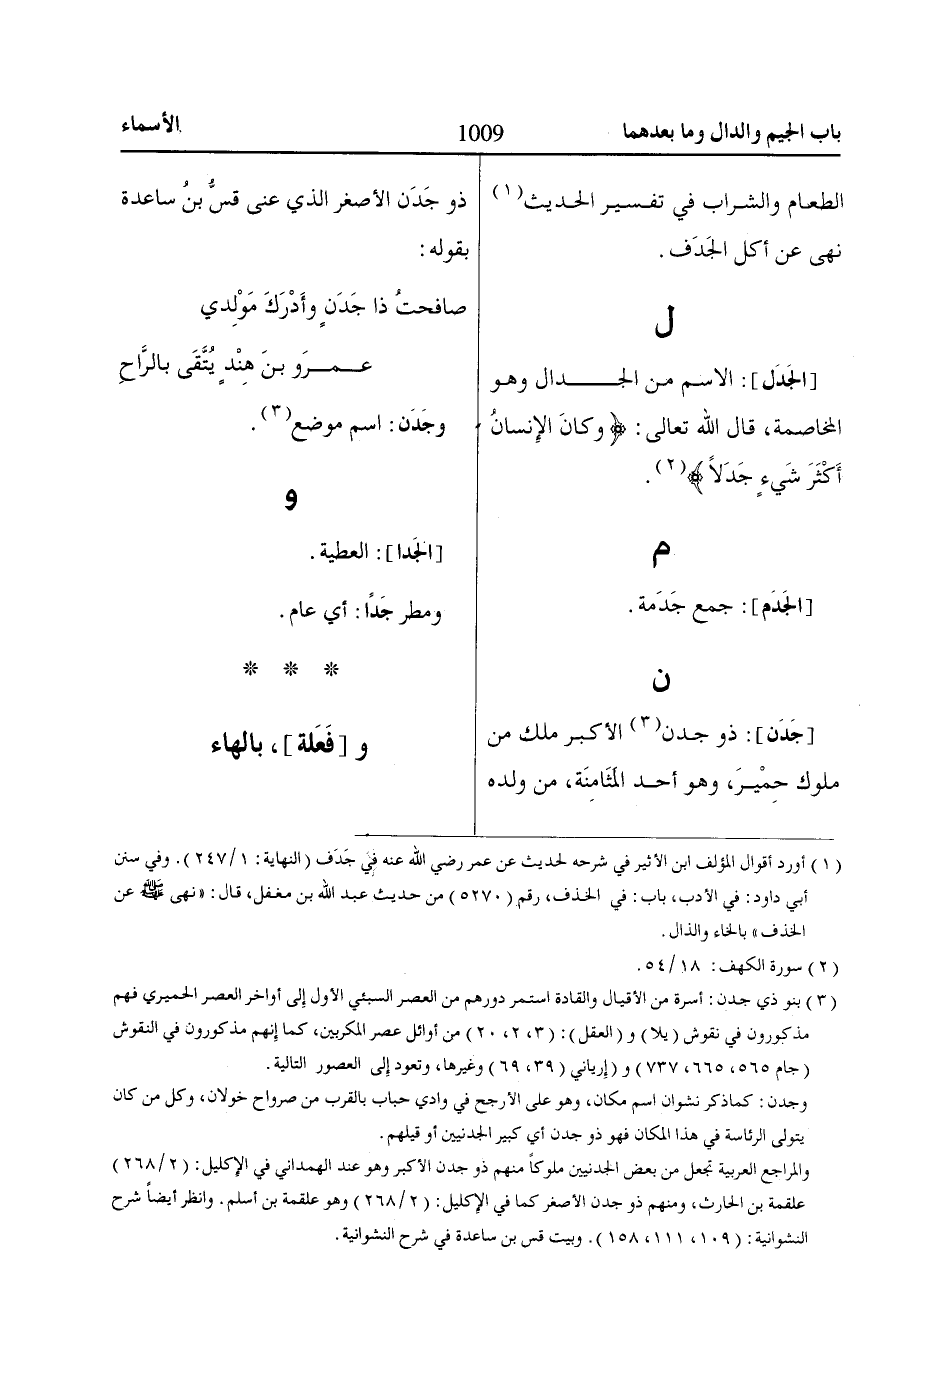 باب الجيم والدال وما بعدهما
1009
الأسماء
الطعام والشراب في تفسير الحديث(١)
نهى عن أكل الجَدَف .
ل
[الجَدَل]: الاسم من الجـــــدال وهـو
المخاصمة، قال الله تعالى: ﴿ وكانَ الإِنسانُ
أَكْثَرَ شَيءٍ جَدَلاً ﴾(٢).
م
[الجَدَم]: جمع جَدَمة .
ن
[جَدَن]: ذو جدن(٣) الأكبر ملك من
ملوك حِمْيرَ، وهو أحد المَثَامنَة، من ولده
ذو جَدَن الأصغر الذي عنى قسُّ بنُ ساعدة
بقوله:
صافحتُ ذا جَدَنٍ وأَدْرَكَ مَوْلدي
عـمــرَو بـنَ هِنْدٍ يُتَّقَى بالرَّاحِ
وجَدَن: اسم موضع(٣).
و
[الجَدا]: العطية .
ومطر جَدًا: أي عام .
* * *
و [فَعَلة]، بالهاء
(١) أورد أقوال المؤلف ابن الأثير في شرحه لحديث عن عمر رضي الله عنه في جَدَف (النهاية: ٢٤٧/١). وفي سنن
أبي داود: في الأدب، باب: في الخذف، رقم (٥٢٧٠) من حديث عبد الله بن مغفل، قال: «نهى ﷺ عن
الخذف» بالخاء والذال .
(٢) سورة الكهف: ٥٤/١٨.
(٣) بنو ذي جدن: أسرة من الأقيال والقادة استمر دورهم من العصر السبئي الأول إلى أواخر العصر الحميري فهم
مذكورون في نقوش (يلا) و(العقل): (٣، ٢، ٢٠) من أوائل عصر المكربين، كما إنهم مذكورون في النقوش
(جام ٥٦٥، ٦٦٥، ٧٣٧) و(إرياني (٣٩، ٦٩) وغيرها، وتعود إلى العصور التالية.
وجدن: كماذكر نشوان اسم مكان، وهو على الأرجح في وادي حباب بالقرب من صرواح خولان، وكل من كان
يتولى الرئاسة في هذا المكان فهو ذو جدن أي كبير الجدنيين أو قيلهم.
والمراجع العربية تجعل من بعض الجدنيين ملوكاً منهم ذو جدن الأكبر وهو عند الهمداني في الإكليل: (٢٦٨/٢)
علقمة بن الحارث، ومنهم ذو جدن الأصغر كما في الإكليل: (٢٦٨/٢) وهو علقمة بن أسلم. وانظر أيضاً شرح
النشوانية: (١٠٩، ١١١، ١٥٨). وبيت قس بن ساعدة في شرح النشوانية.